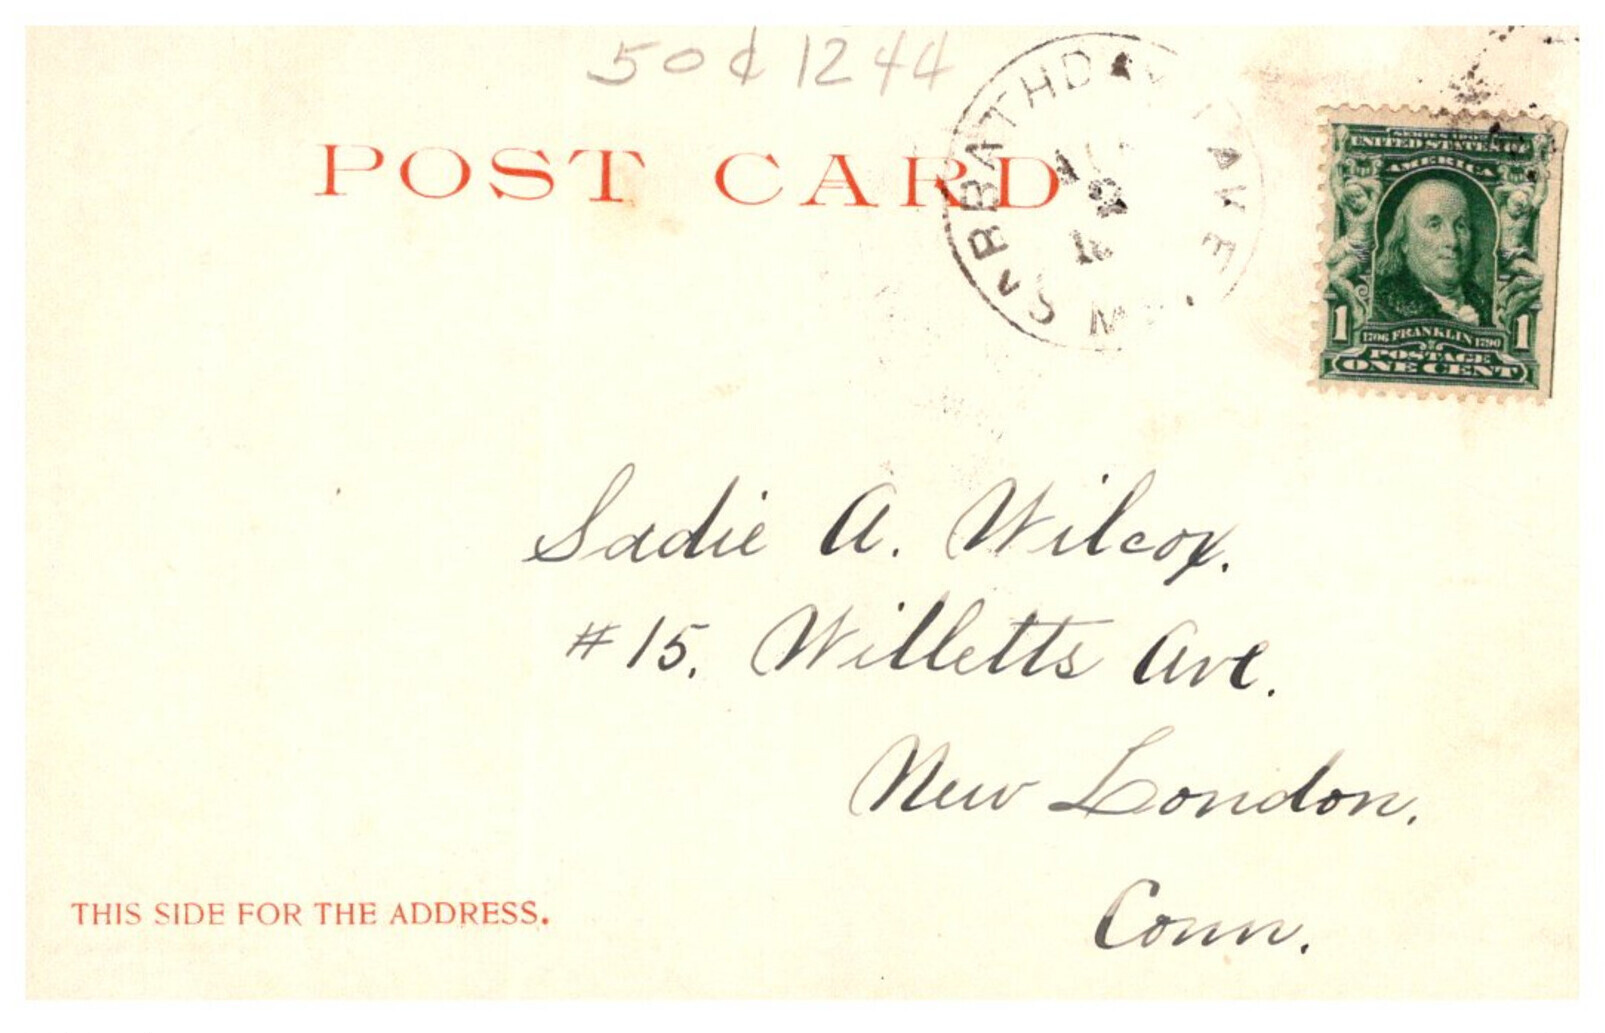 50¢ 1244
POST CARD
SABBATHDAY LAKE
SERIES 1902
UNITED STATES OF
AMERICA
1706 FRANKLIN 1790
1 1
POSTAGE
ONE CENT
Sadie A. Wilcox.
# 15. Willetts Ave.
New London.
Conn.
THIS SIDE FOR THE ADDRESS.